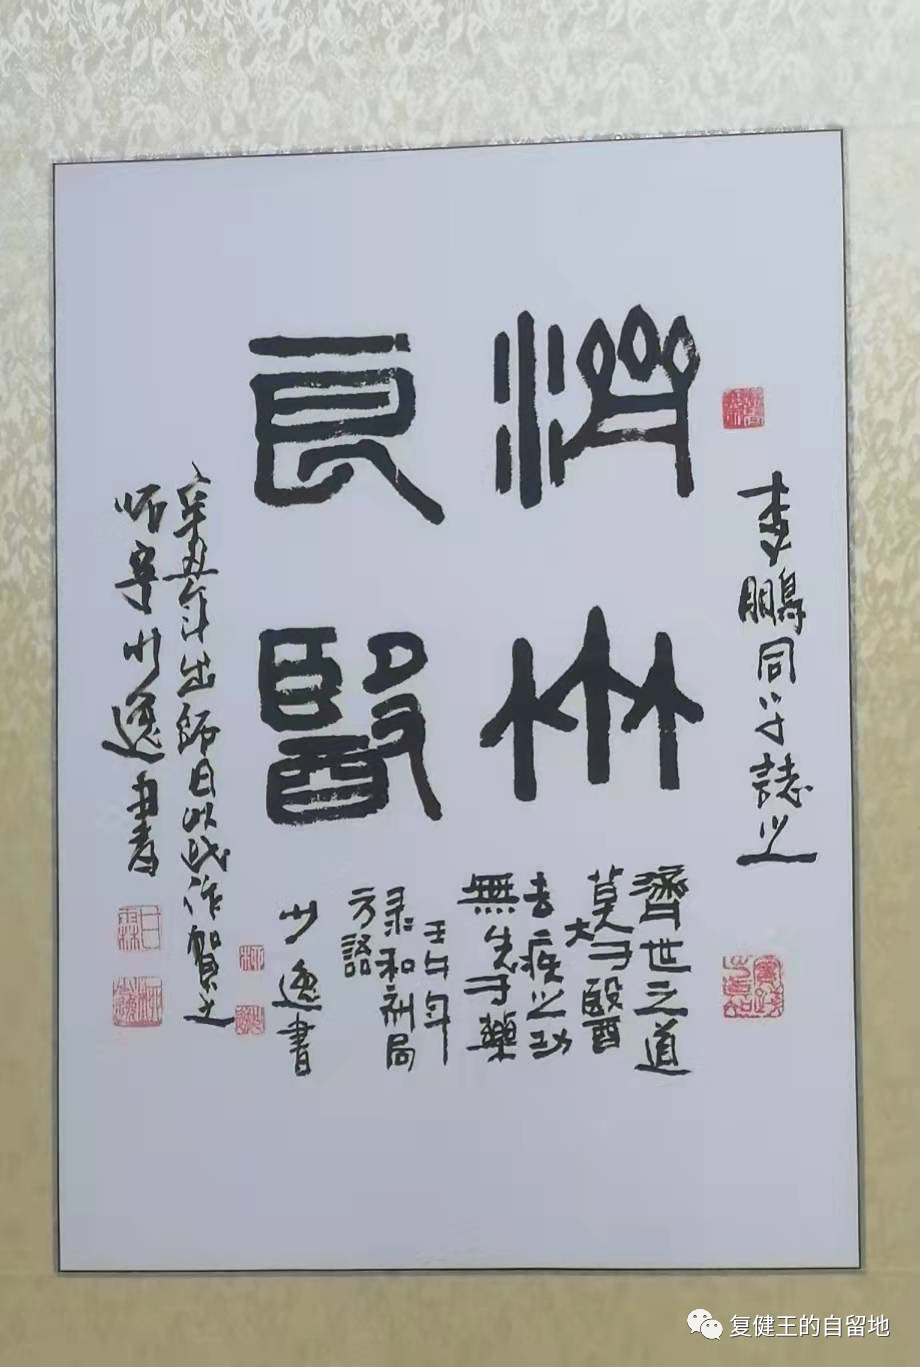 李鵬同学誌之
濟世
良醫
濟世之道
莫大于醫
去疾之功
無先于藥
壬午年
录和剂局
方語
少逸書
辛丑年出师日以此作賀之
师少逸書
复健王的自留地